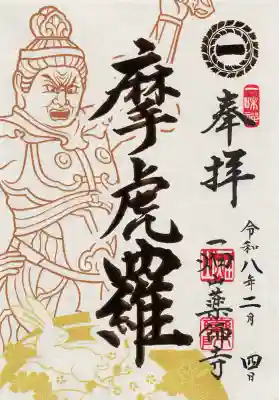 一
奉拝
令和八年二月四日
一畑山薬師寺
摩虎羅